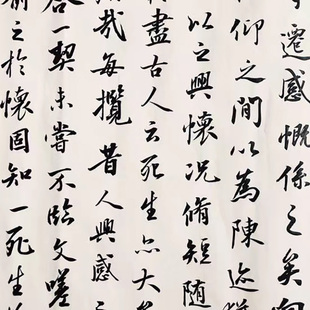 遷感慨係之矣向
仰之間以為陳迹猶
以之興懷況脩短隨
盡古人云死生亦大矣
哉每攬昔人興感之
合一契未嘗不臨文嗟
喻之於懷固知一死生